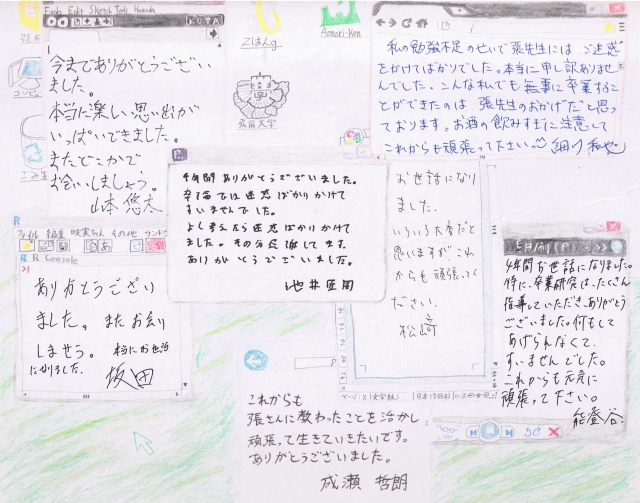 Edit Sketch Tools
KOTA
今までありがとうござい
ました。
本当に楽しい思い出が
いっぱいできました。
またどこかで
お会いしましょう。
山本 悠太
Aomori-Ken
筑前大学
私の勉強不足のせいで張先生には、ご迷惑
をかけてばかりでした。本当に申し訳ありませ
んでした。こんな私でも無事に卒業するこ
とができたのは 張先生のおかげだと思っ
ております。お酒の飲みすぎに注意して
これからも頑張って下さい。
4年間ありがとうございました。
卒論では迷惑ばかりかけて
すいませんでした。
よく考えたら迷惑ばかりかけて
ました。その分感謝してます。
ありがとうございました。
お世話になり
ました.
いろいろ大変だと
思いますが、これ
からも頑張ってく
ださい.
松崎
ファイル 編集 その他
R Console
ありがとうござい
ました。またお会い
しませう。本当にお世話
になりました。
坂田
印刷(P)
4年間お世話になりました。
特に、卒業研究は、たくさん
指導していただき、ありがとう
ございました。何もして
あげられなくて、
すいませんでした。
これからも元気に
頑張って下さい。
能登谷
これからも
張さんに教わったことを活かし
頑張って生きていきたいです。
ありがとうございました。
成瀬 哲朗